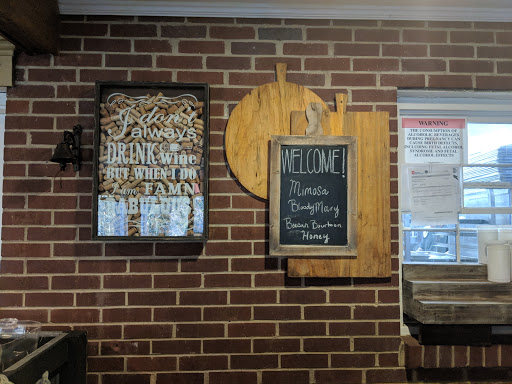 I don't
always
DRINK Wine
BUT WHEN I DO
I am FAMN
FABULOUS
WELCOME!
Mimosa
Bloody Mary
Bacon Bourbon
Honey
WARNING
THE CONSUMPTION OF
ALCOHOLIC BEVERAGES
DURING PREGNANCY CAN
CAUSE BIRTH DEFECTS,
INCLUDING FETAL ALCOHOL
SYNDROME AND FETAL
ALCOHOL EFFECTS